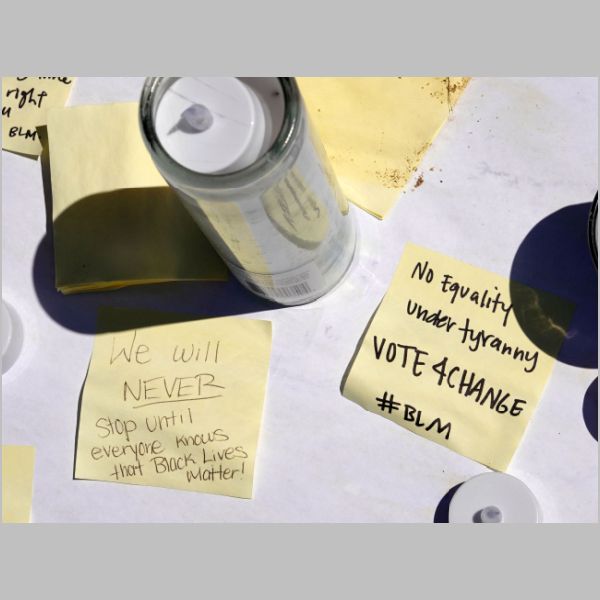 right
BLM
We will
NEVER
Stop until
everyone knows
that Black Lives
Matter!
No Equality
under tyranny
VOTE 4CHANGE
#BLM